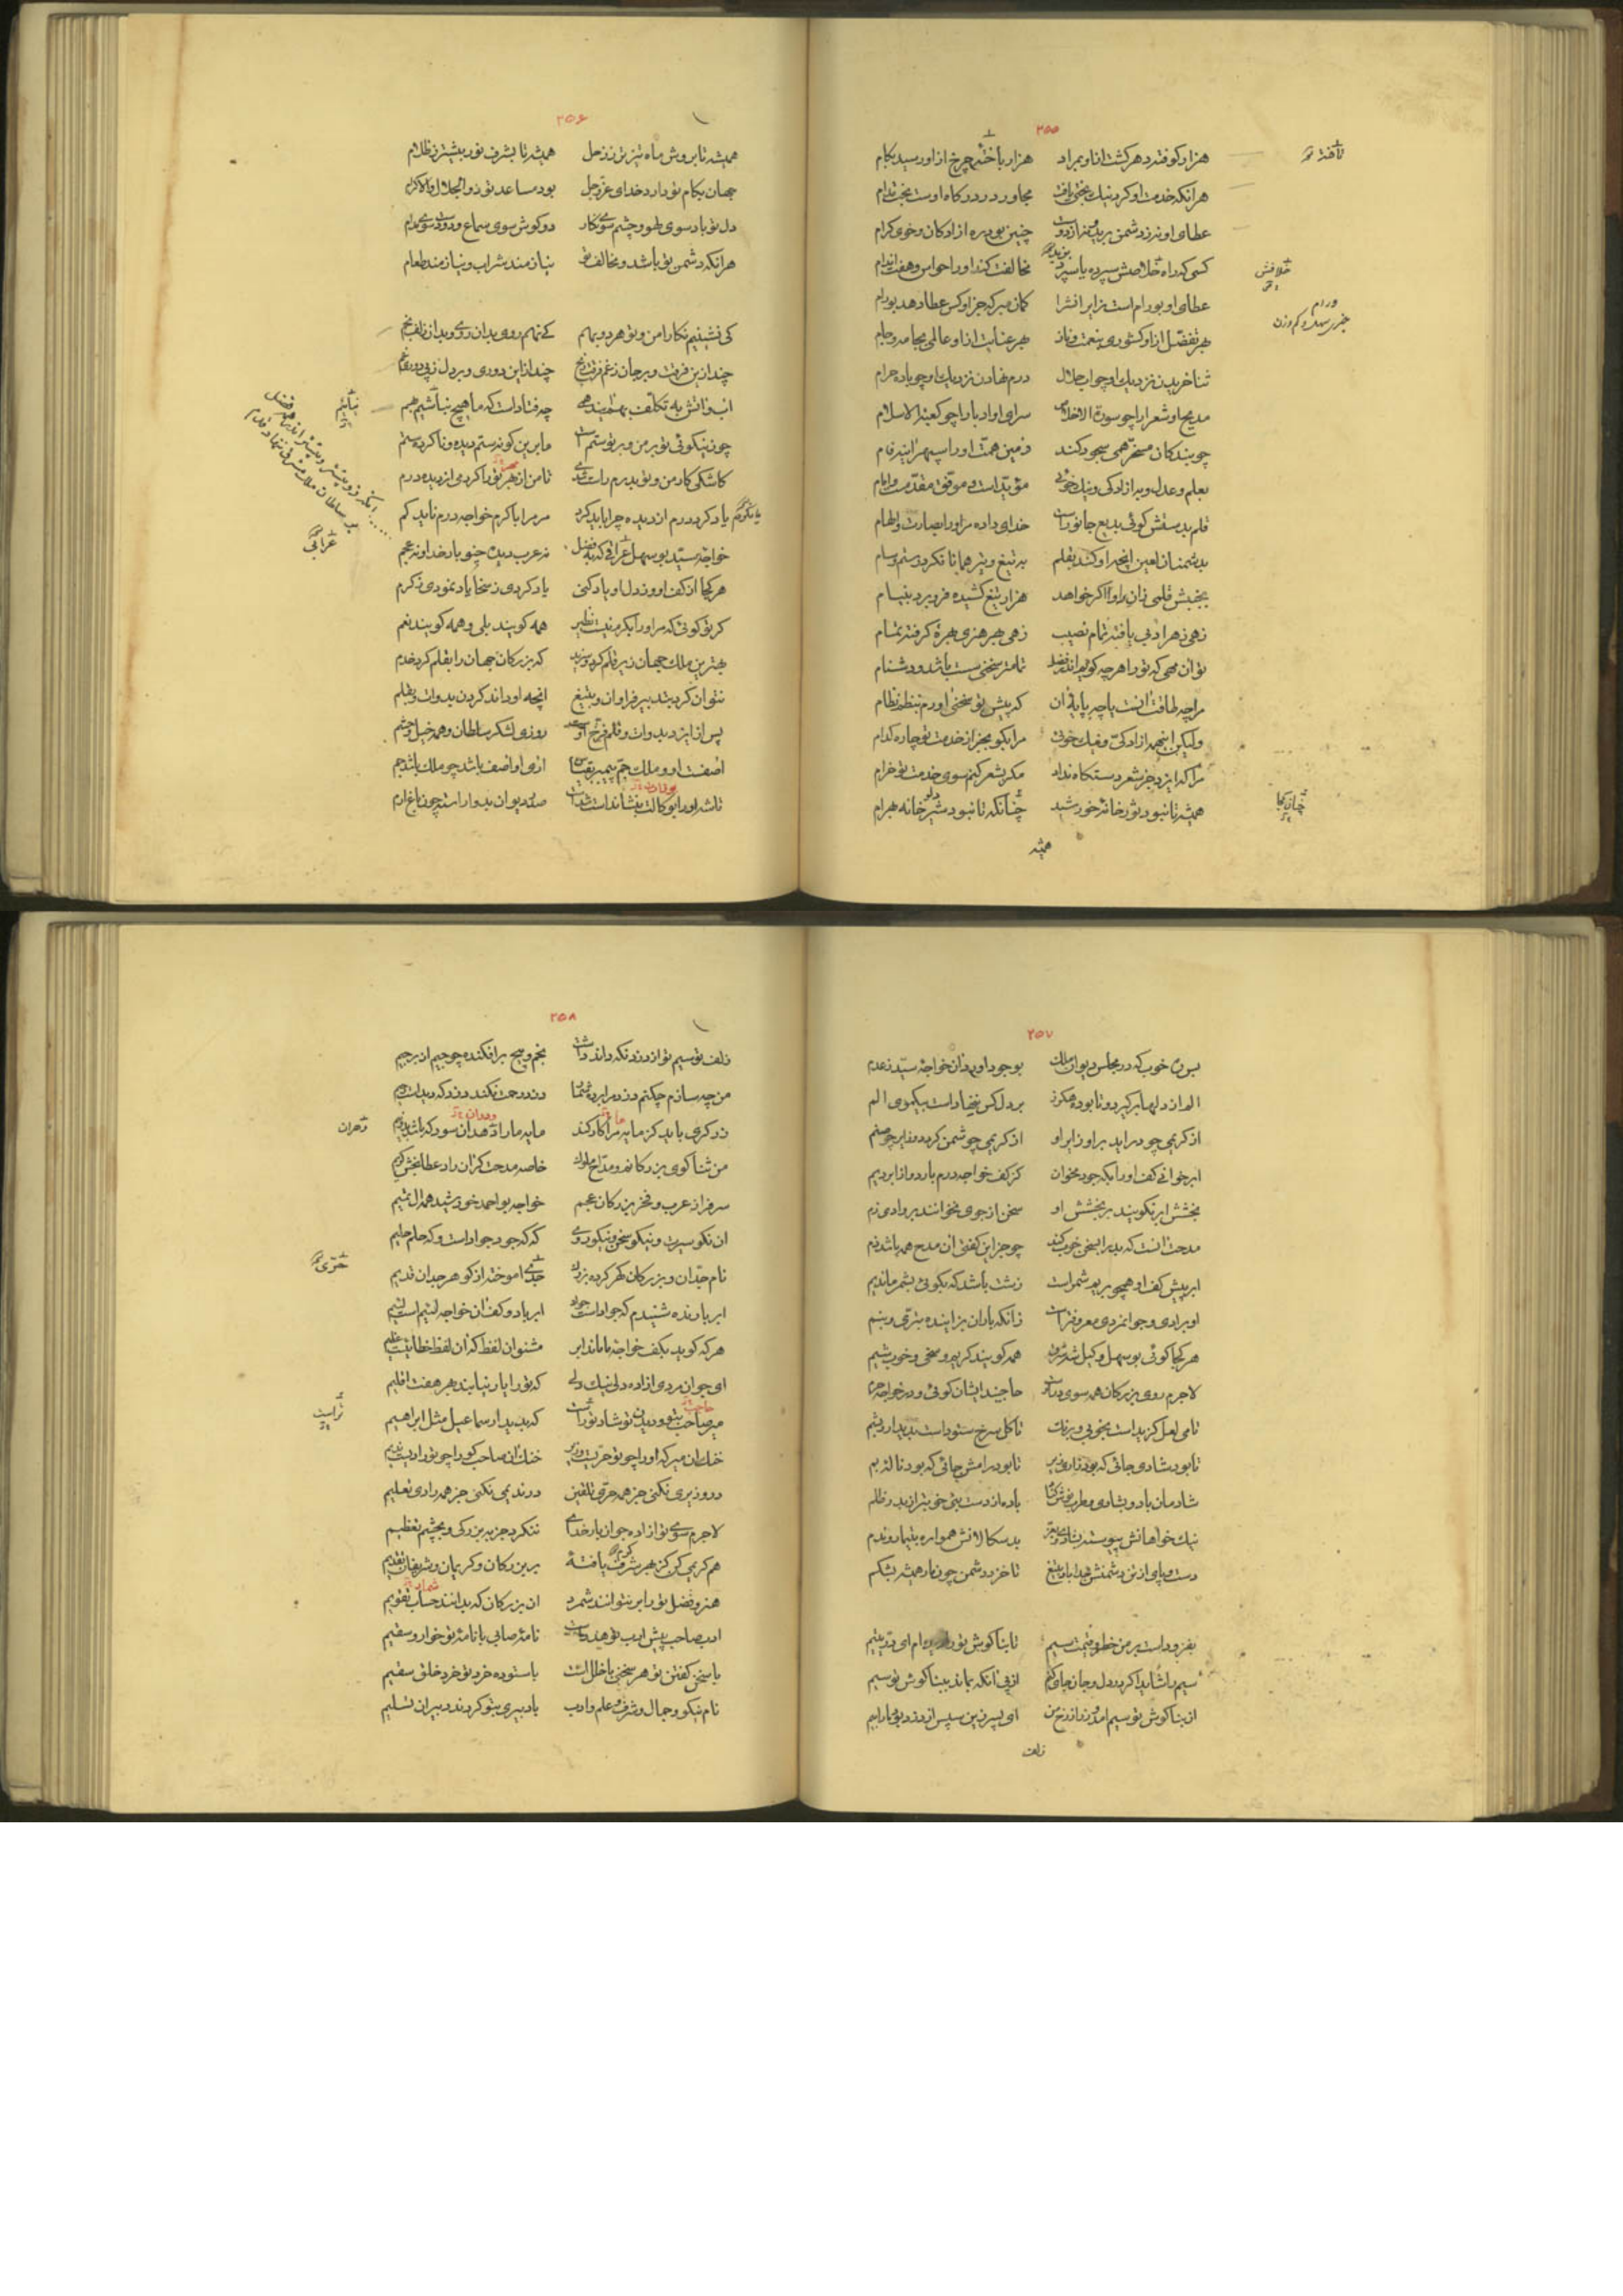 ۲۵۵
هزار کوفته دهر گشت ازاو بمراد هزار باخته چرخ ازاو رسید بکام
هرآنکه خدمت او کرد نیک بختی یافت مجاور در درگاه اوست بخت مدام
عطای او نه ز دشمن برید و نه از دوست چنین بود ره ازادگان و خوی کرام
کسی که راه خلافش سپرده یا سپرد مخالفت کند او را حواس و هفت اندام
عطای او بود رام است زایرانش را گمان مبر که جز او کس عطا دهد بورام
بهر تفضل ازاو کشوری بنعمت و ناز بهر عنایت ازاو عالمی بجامه و جام
ثنا خریدن نزدیک او چو اب حلال درم نهادن نزدیک او چو باده حرام
مدیح او شعرا را چو سورة الاخلاص سرای او ادبا را چو کعبة الاسلام
چو بندگان مسخر همی سجود کنند زمین همت او را سپهر اینه فام
بعلم و عدل و به ازادگی و نیک خوئی مؤید است و موفق مقدمست و امام
قلم بدستش گوئی بدیع جانوریست خدای داده مر او را بصارت و الهام
بدشمنان لعین انچه او کند بقلم به تیغ و تیر همانا نکرد رستم و سام
بجنبش قلمی زان او اگر خواهد هزار تیغ کشیده فرو برد بنیام
زهی ز هر ادبی یافته تمام نصیب زهی بهر هنری بهره گرفته تمام
تو ان مهی که تو را هرچه گویم اندر فضل تمامتر سخنی سست باشد و دشنام
مرا چه طاقت انست یا چه پایه ان که پیش تو سخنی اورم بنظم نظام
ولیکن اینهمه ازادگی و نیک خوئی مرا بگو بجز از خدمت تو چاره کدام
مرا که ایزد جز شعر دستگاه نداد مگر بشعر کنم سوی خدمت تو خرام
همیشه تا نبود ثور خانه خورشید چنانکه تا نبود شیر خانه بهرام
همیشه
تافته
خلافش
ورام
چیزی سهل و کم وزن
چنان کجا
۲۵۶
همیشه تا بروش ماه تیزتر ز زحل همیشه تا بشرف نور بیشتر ز ظلام
جهان بکام تو دارد خدای عز و جل بود مساعد تو ذوالجلال والاکرام
دل تو باد سوی لهو و چشم سوی نگار دو گوش سوی سماع و دو دست سوی مدام
هرآنکه دشمن تو باشد و مخالف تو نیازمند شراب و نیازمند طعام
کی نشینیم نگارا من و تو هر دو بهم کی نهم روی بدان روی و بدان زلف بخم
چند ازین فرقت و بر جان ز غم فرقت رنج چند ازاین دوری و بر دل ز پی دوری غم
چه فتاد است که ما هیچ نباشیم بهم
چون نیکوئی تو بر من و بر تو ستم است ما برین گونه ستم دیده و ناکرده ستم
کاشکی کار من و تو بدرم راست شدی تا من از بهر تو را کردمی از دیده درم
یاد کردم درم از دیده چرا باید کرد مر مرا با کرم خواجه درم ناید کم
خواجه سید بوسهل عراقی که بفضل نه عرب دیده چنو بار خدا و نه عجم
هر کجا از کف او وز دل او یاد کنی یاد کردی ز سخا یاد نمودی ز کرم
گر تو گوئی که مر او را بکرم نیست نظیر همه گویند بلی و همه گویند نعم
بهترین ملک جهان زیر قلم کرد و سزید که بزرگان جهان را بقلم کرد خدم
نتوان کرد بتدبیر فراوان و بتیغ انچه او داند کردن بدوات و بقلم
پس از ایزد بدوات و قلم فرخ اوست روزی لشکر سلطان و همه خیل و حشم
اصفست او و ملک جم پیمبر بقیاس ازی اواصف باشد چو ملک باشد جم
تا شه او را بوکالت بنشاند است شد است صفه دیوان بدو اراسته چون باغ ارم
نباشیم
عراقی
۲۵۷
بس ره خوب که در مجلس دیوان ملک بوجود اورد ان خواجه سید ز عدم
الم از دلها برگیرد و تا بوده هگرز بر دل کس ننهاد است بیکموی الم
از کریمی چو درآید بر او زایر او از کریمی چو شمن گردد و زایر چو صنم
ابر خوانی کف او را بگه جود مخوان کز کف خواجه درم بارد و از ابر دیم
بخشش ابر نگویند بر بخشش او سخن از جوی نخوانند بر وادی زم
مدحت انست که بدرا بسخن خوب کند چو جز این گفتی ان مدح همه باشد ذم
ابر پیش کف او همچو بر یم شمر است زشت باشد که بگوئی بشمر ماند یم
او برادی و جوانمردی معروفتر است زانکه باران بزاینده بتری و بنم
هر کجا گوئی بوسهل وکیل شه شرق همه گویند کریم و سخی و خوب شیم
لاجرم روی بزرگان همه سوی در اوست حاجبند ایشان گوئی و در خواجه حرم
تا می لعل گزید است بخوبی و برنک تا گل سرخ ستود است بدیدار و بشم
تا بود شادی جائی که بود زاری زیر تا بود رامش جائی که بود ناله بم
شادمان باد و بشادی و طرب نوش کناد باده از دست بتی خوبتر از بدر ظلم
نیک خواهانش پیوسته بشادی و بعز بدسگالانش همواره بتیمار و ندم
دست و پای از تن دشمنش جدا باد بتیغ تا خزد دشمن چون مار همیشه بشکم
بفزوده است بر من خطر و قیمت سیم تا بناگوش تو را دیده ام ای در یتیم
سیم را شاید اگر در دل و جان جای کنم از پی انکه بماند ببناگوش تو سیم
از بناگوش تو سیم امد و زر از رخ من ای پسر زین سپس از دزد بوی با ر ا بیم
زلف
۲۵۸
زلف تو سیم تو از دزد نگه داند داشت بخم و پیچ بر افکنده چو جیم از بر جیم
من چه سازم چکنم دزد مرا برده شمار دزد رحمت نکند دزد که دید است رحیم
زرگری باید کز مایه مرا کار کند مایه ما را دهد ان سود که باشد بدو نیم
من ثناگوی بزرگانم و مداح ملوک خاصه مدحت گر ان راد عطا بخش کریم
سرفراز عرب و فخر بزرگان عجم خواجه بو احمد خورشید همه ال تمیم
ان نکو سیرت و نیکو سخن و نیکو روی که گه جود جواد است و گه حلم حلیم
نام جدان و بزرگان گهر کرده بزرگ جدی اموخته از گوهر جدان قدیم
ابر بارنده شنیدم که جواد است جواد ابر با دو کف ان خواجه لئیم است لئیم
هرکه گوید بکف خواجه ما ماند ابر مشنو ان لفظ که ان لفظ خطائیست عظیم
ای جوان مردی ازاده دلی نیک دلی که تو را یار نیابند بهر هفت اقلیم
میر صاحب بتو و دیدن تو شادتر است که بدیدار سماعیل مثل ابراهیم
خنک ان میر که او را چو تو حریست وزیر خنک ان صاحب کو را چو تو رادیست ندیم
در وزیری نکنی جز همه حری تلقین در ندیمی نکنی جز همه رادی تعلیم
لاجرم سوی تو ازاده جوان بار خدای ننگرد جز به بزرگی و بچشم تعظیم
هم کریمی گر کز بهر شرف یافتهٔ بر بزرگان و کریمان و شریفان تقدیم
هنر و فضل تو را بر نتوانند شمرد ان بزرگان که بدانند حساب تقویم
ادب صاحب پیش ادب تو هدر است نامه صابی با نامه تو خوار و سقیم
با سخن گفتن تو هر سخنی با خلل است با ستوده خرد تو خرد خلق سقیم
نام نیکو و جمال و شرف و علم و ادب با دبیری بتو کردند دبیران تسلیم
حری
تراست